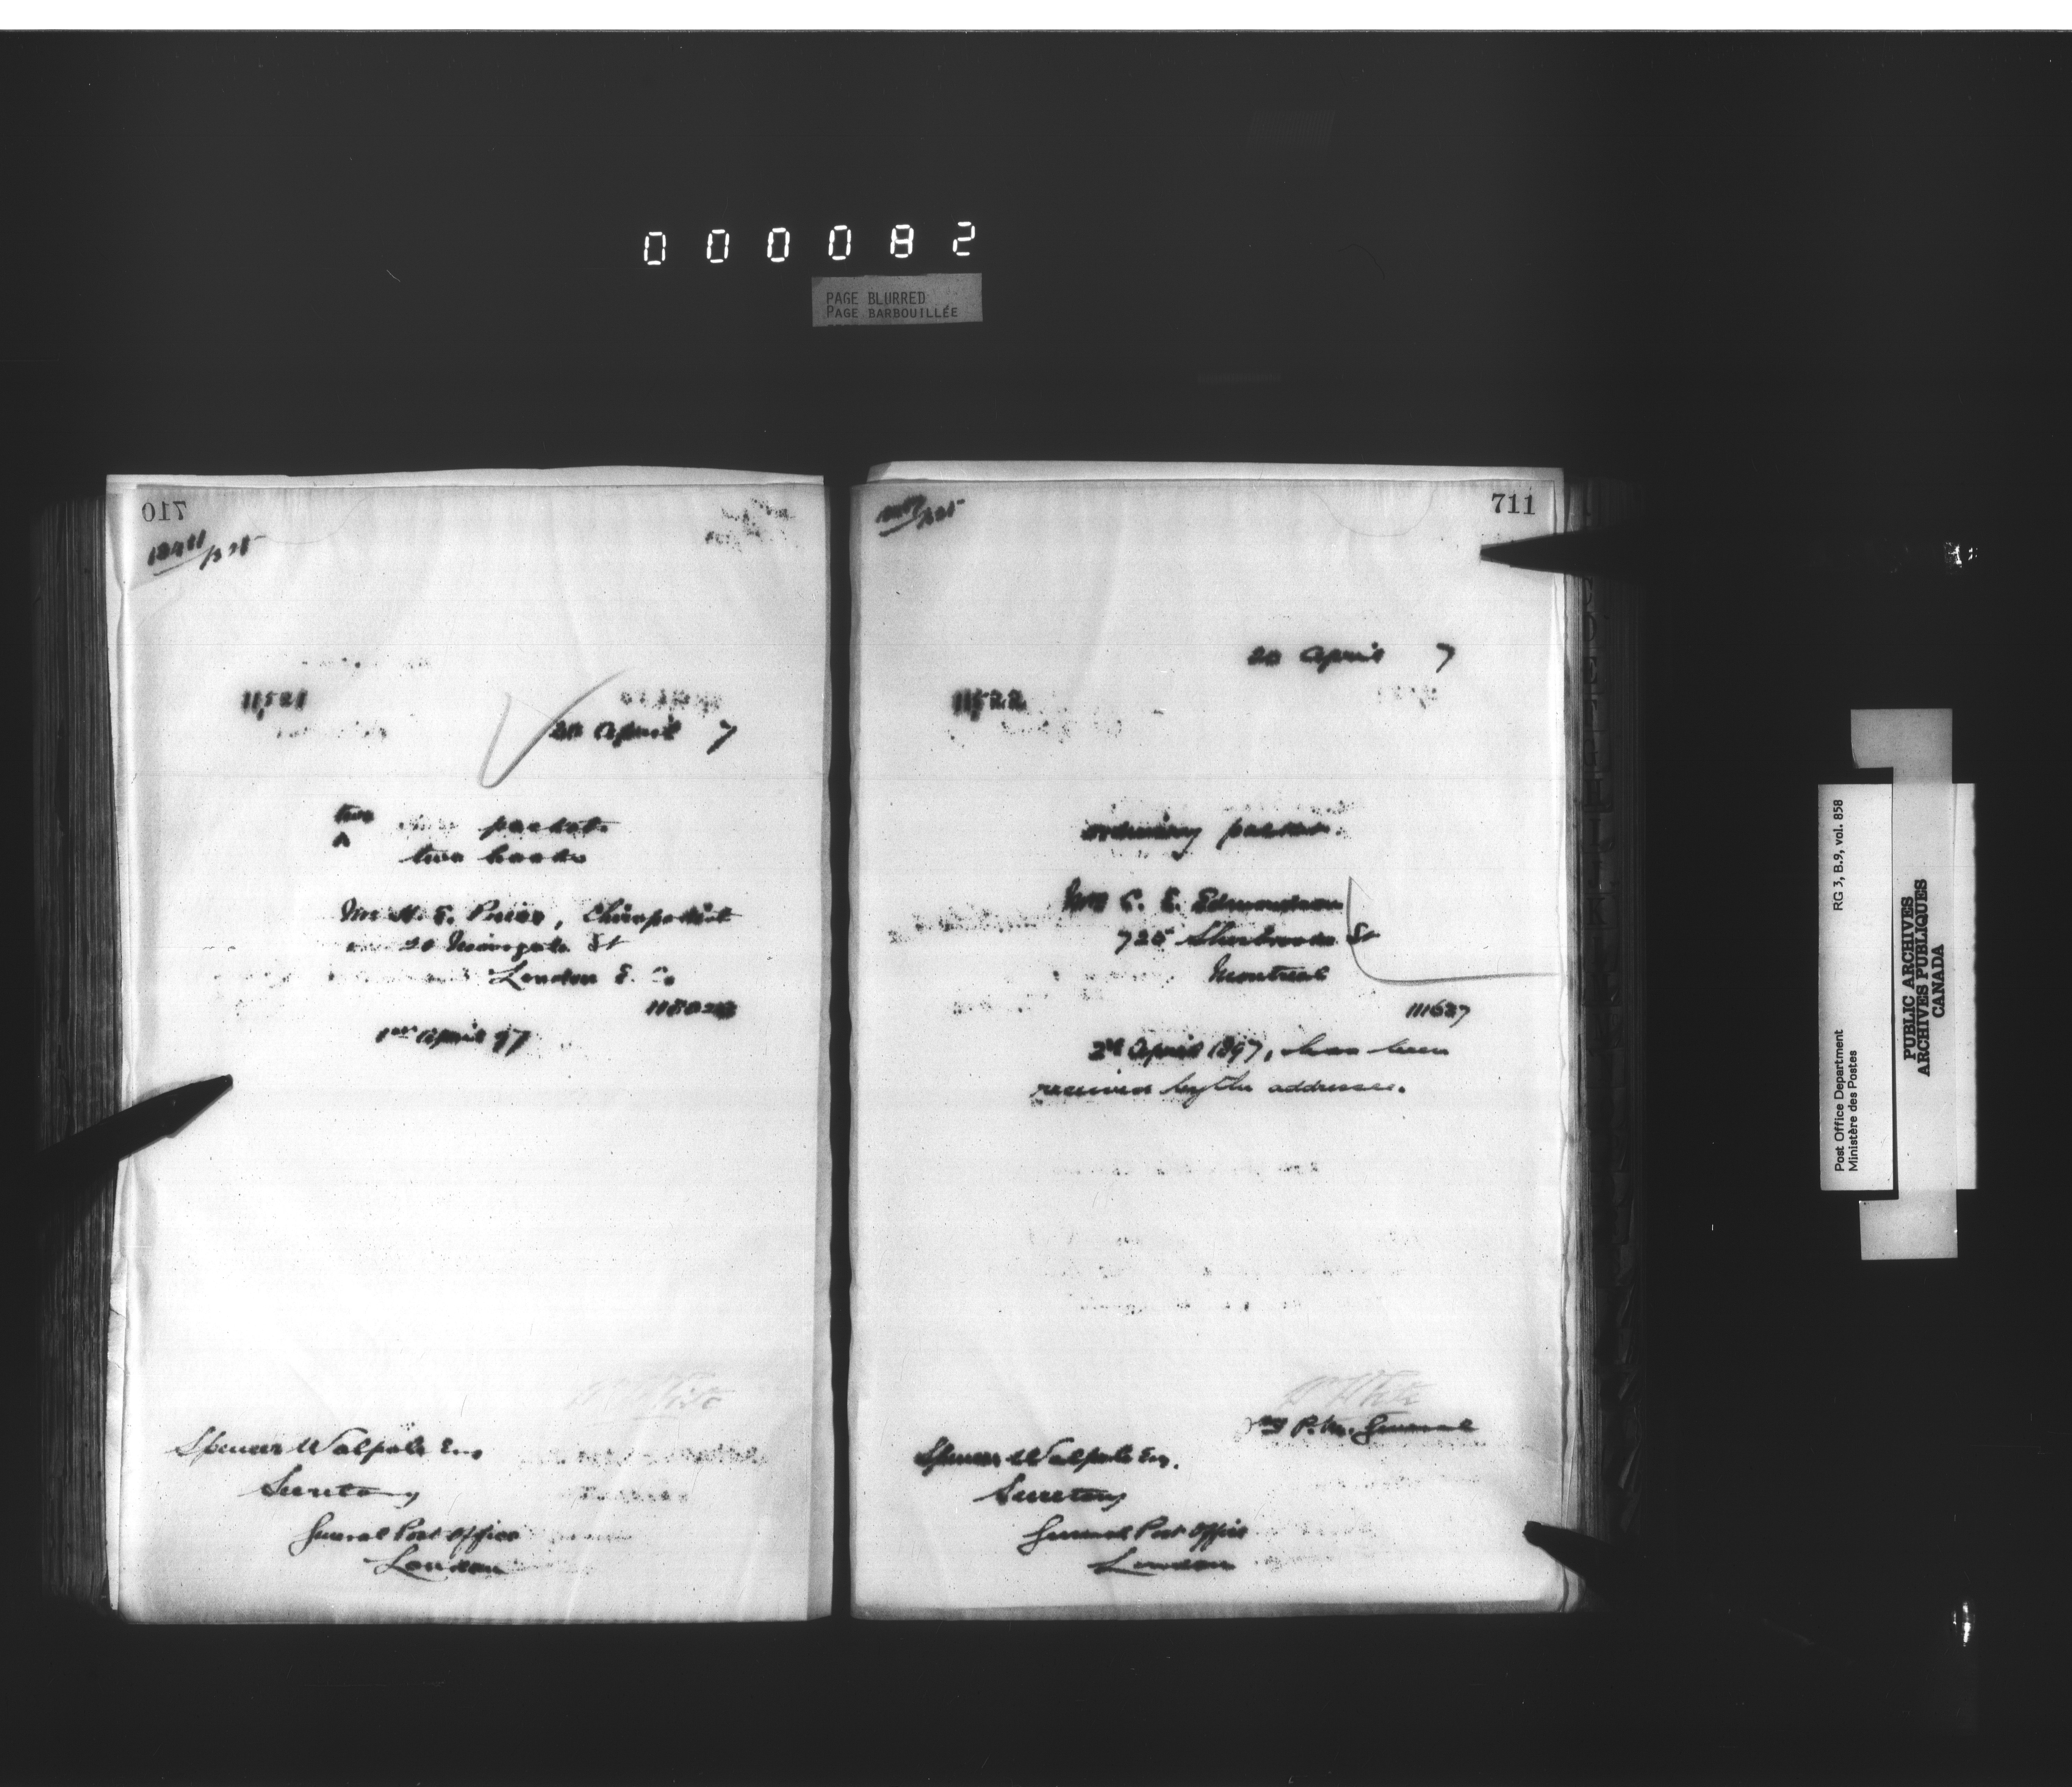 000082
PAGE BLURRED
PAGE BARBOUILLÉE
710
11521
20 April 7
two
packet
two books
Mr H. E. Price, Chiropodist
20 Moorgate St
London E. C.
1st April 97
Spencer Walpole Esq
Secretary
General Post Office
London
711
20 April 7
11522
ordinary packet.
C. E. Edmondson
725 Sherbrooke St
Montreal
111637
2d April 1897, has been
received by the addressee.
White
P. M. General
Spencer Walpole Esq.
Secretary
General Post Office
London
Post Office Department RG 3, B.9, vol. 858
Ministère des Postes
PUBLIC ARCHIVES
ARCHIVES PUBLIQUES
CANADA